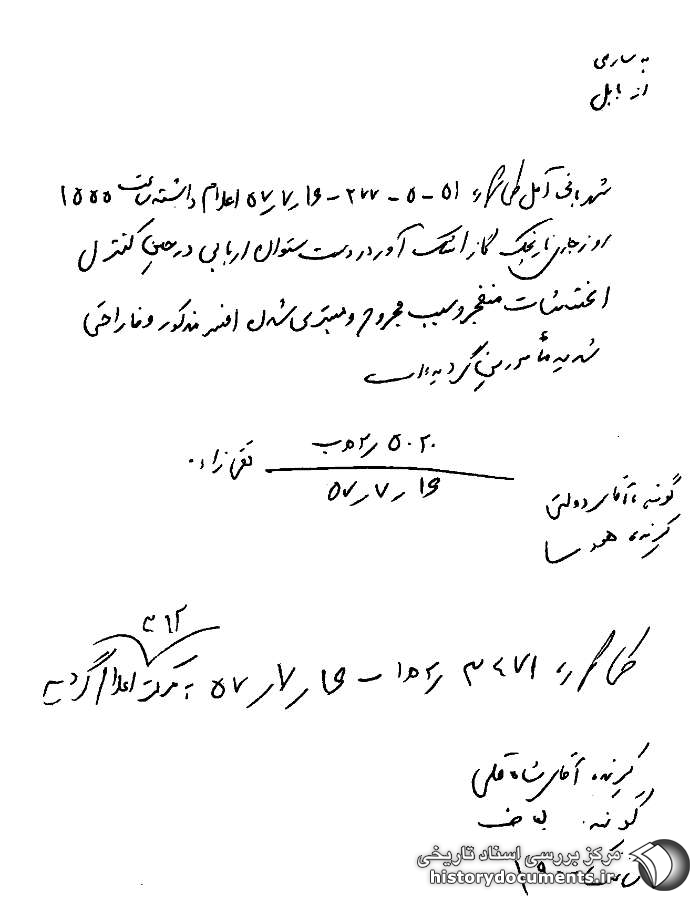 به ساری
از بابل
شهربانی آمل طی گزارش ۵۱-۵-۲۷۷-۱۶ر۷ر۵۷ اعلام داشته ساعت ۱۵۵۵
روز جاری نارنجک گاز اشک آور در دست ستوان اربابی در حین کنترل
اغتشاشات منفجر و سبب مجروح و بستری شدن افسر مذکور و ناراحتی
شدید مأمورین گردیده است
۵۰۲۰ ر۲ه‍ب
تقی زاده
۱۶ر۷ر۵۷
گوینده آقای دولتی
گیرنده
۳۱۲
طی گزارش ۳۴۷۱ ر۲ه‍۱ - ۱۶ر۷ر۵۷ به مرکز اعلام گردید
گیرنده آقای شاه قلی
گوینده
ساعت
مرکز بررسی اسناد تاریخی
historydocuments.ir